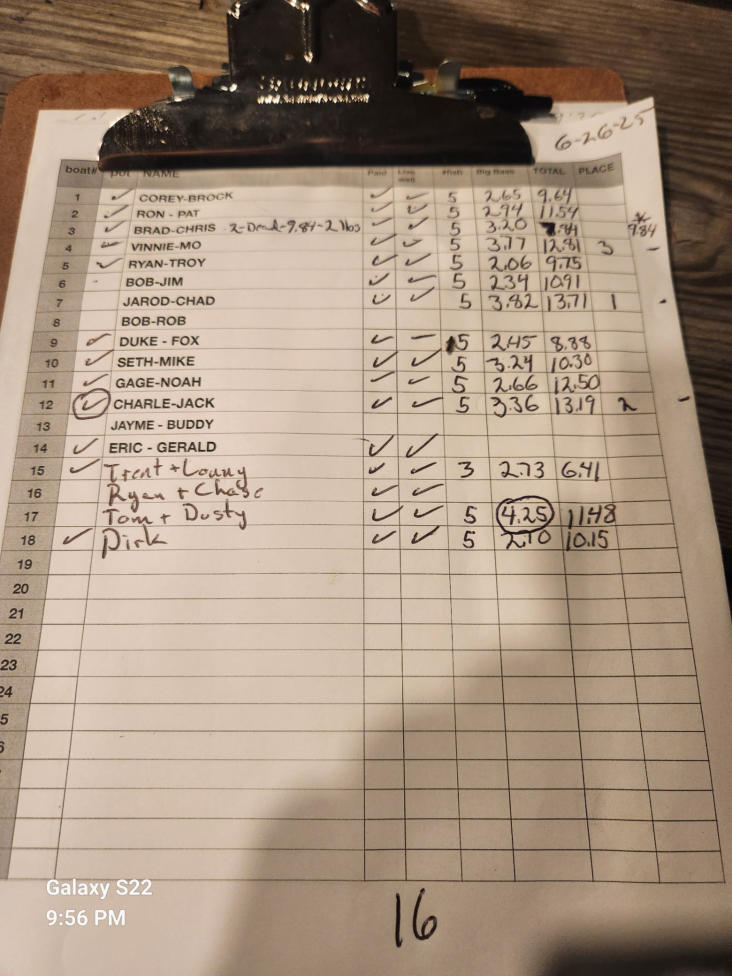 6-26-25
boat# pot NAME Paid Live well #fish Big Bass TOTAL PLACE
1 ✓ COREY-BROCK ✓ ✓ 5 2.65 9.64
2 ✓ RON - PAT ✓ ✓ 5 2.94 11.54
3 ✓ BRAD-CHRIS 2-Dead-9.84-2 lbs ✓ ✓ 5 3.20 7.84 * 9.84
4 ✓ VINNIE-MO ✓ ✓ 5 3.77 12.81 3 -
5 ✓ RYAN-TROY ✓ ✓ 5 2.06 9.75
6 - BOB-JIM ✓ ✓ 5 2.34 10.91
7 JAROD-CHAD ✓ ✓ 5 3.82 13.71 1 -
8 BOB-ROB
9 ✓ DUKE - FOX ✓ - 5 2.45 8.88
10 ✓ SETH-MIKE ✓ ✓ 5 3.24 10.30
11 ✓ GAGE-NOAH ✓ ✓ 5 2.66 12.50
12 ✓ CHARLE-JACK ✓ ✓ 5 3.36 13.19 2 -
13 JAYME - BUDDY
14 ✓ ERIC - GERALD ✓ ✓
15 ✓ Trent + Lonny ✓ ✓ 3 2.73 6.41
16 Ryan + Chase ✓ ✓
17 Tom + Dusty ✓ ✓ 5 4.25 11.48
18 ✓ Dirk ✓ ✓ 5 2.10 10.15
19
20
21
22
23
24
5
6
Galaxy S22
9:56 PM
16